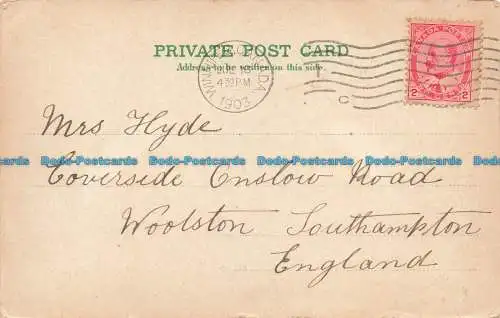 PRIVATE POST CARD
Address to be written on this side.
CANADA
4 30 PM
1903
2 2
Mrs Hyde
Dodo-Postcards Dodo-Postcards Dodo-Postcards Dodo-Postcards Dodo-Postcards
Coverside Onslow Road
Woolston Southampton
England